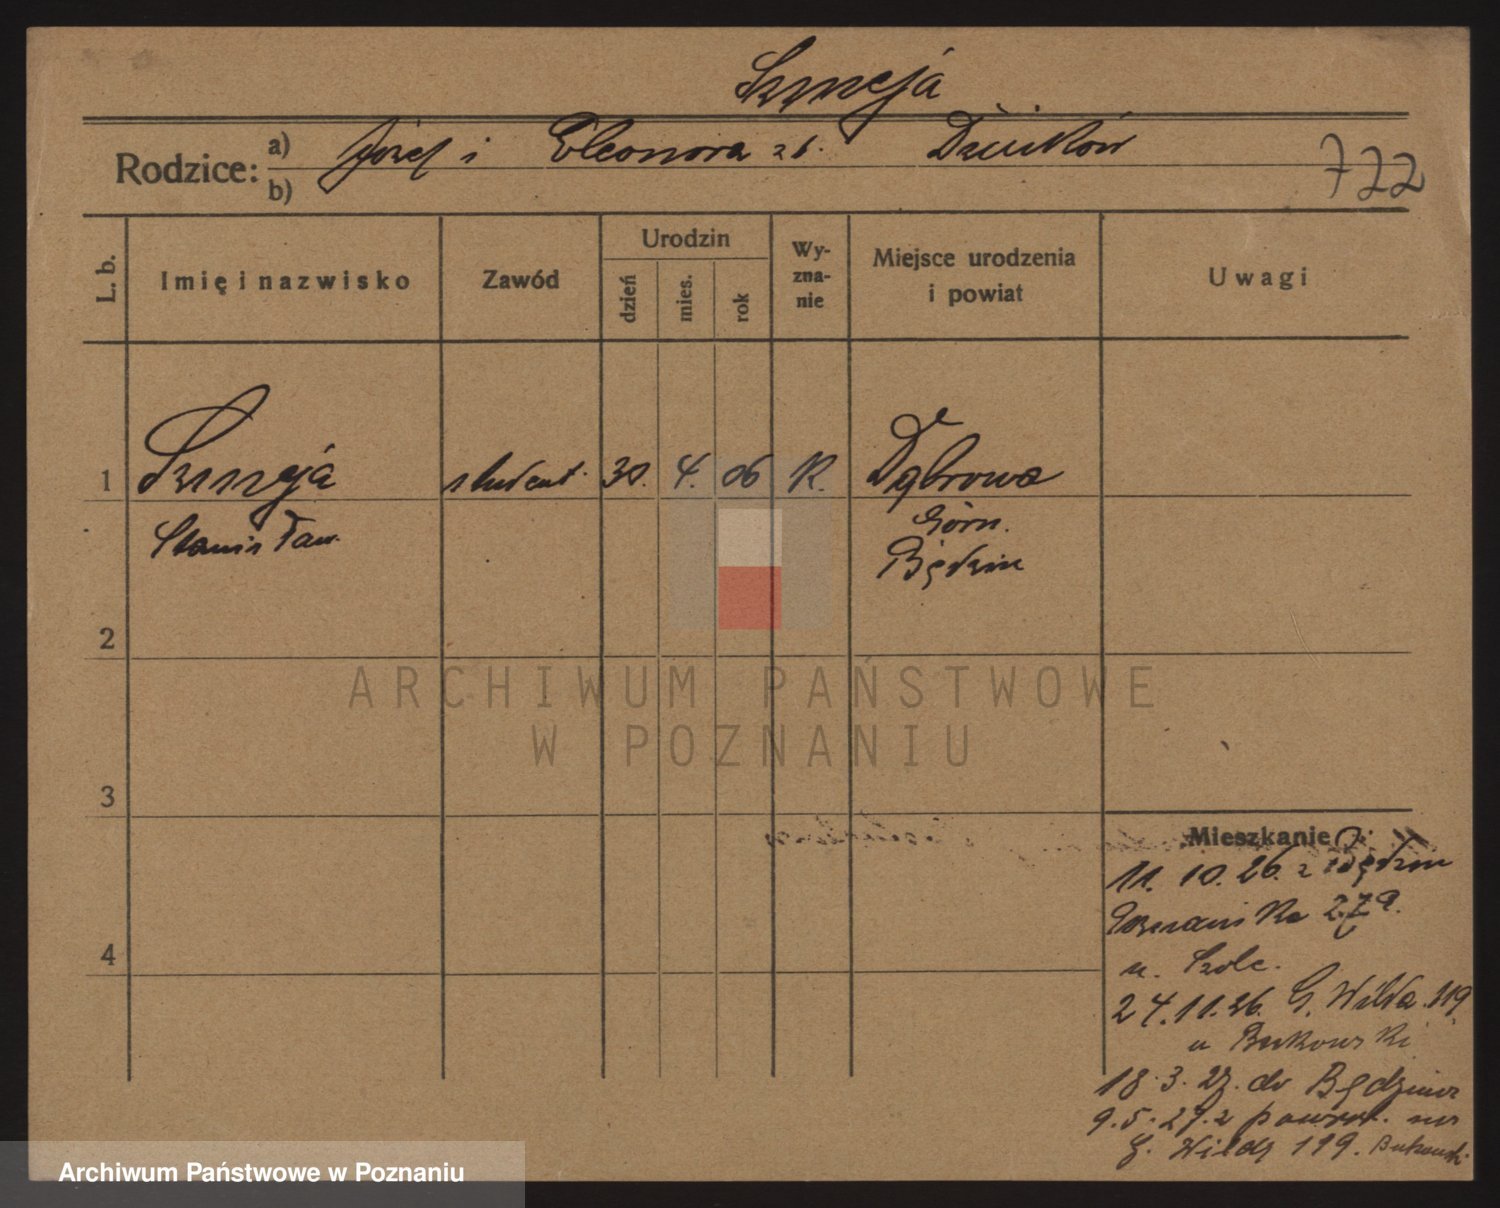 Szmeja
Rodzice: a) Józef i Eleonora z d.
b)
722
L. b. Imię i nazwisko Zawód Urodzin dzień mies. rok Wy-zna-nie Miejsce urodzenia i powiat Uwagi
1 Szmeja student 30. 4. 06 K. Dąbrowa
Stanisław Górn.
Będzin
2
ARCHIWUM PAŃSTWOWE
W POZNANIU
3
Mieszkanie
11. 10. 26. z Będzin
4
u. Szolc.
24.11.26. G. Wilda 119.
u Bukowski
18.3.27. do Będzina
9.5.27. z powrot. na
G. Wildę 119. Bukowski
Archiwum Państwowe w Poznaniu